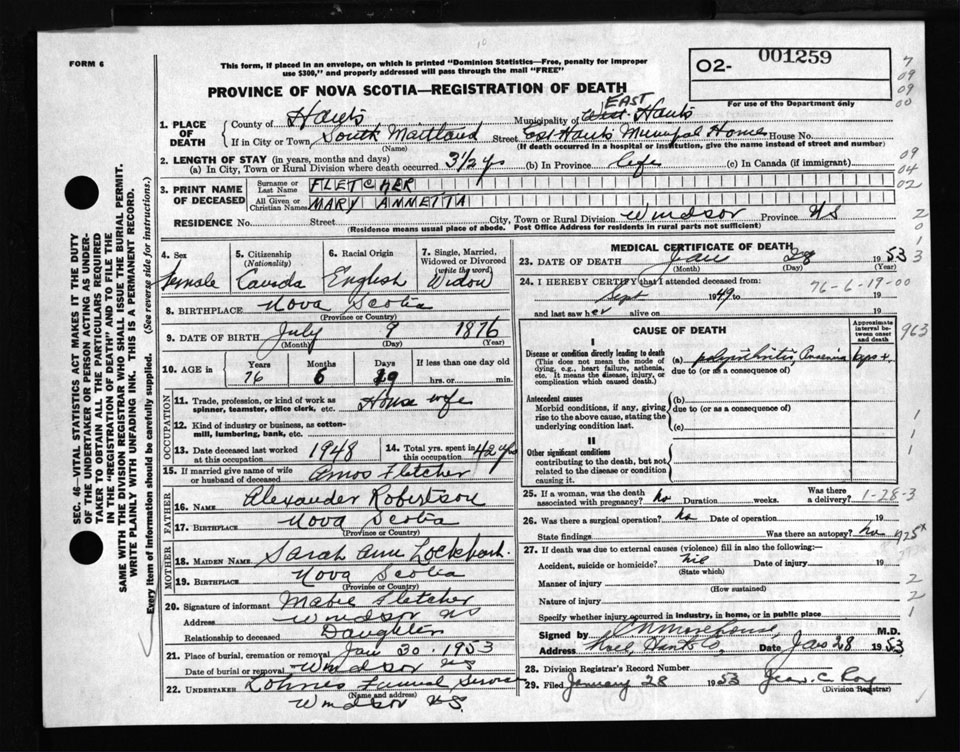 FORM 6
This form, if placed in an envelope, on which is printed "Dominion Statistics—Free, penalty for improper
use $300," and properly addressed will pass through the mail "FREE"
O2- 001259
For use of the Department only
PROVINCE OF NOVA SCOTIA—REGISTRATION OF DEATH
7
09
09
00
1. PLACE OF DEATH
County of Hants Municipality of EAST West Hants
If in City or Town South Maitland Street East Hants Municipal Home House No.
(Name) (If death occurred in a hospital or institution, give the name instead of street and number)
2. LENGTH OF STAY (in years, months and days)
(a) In City, Town or Rural Division where death occurred 3 1/2 yrs (b) In Province Life (c) In Canada (if immigrant)
09
04
02
3. PRINT NAME OF DECEASED
Surname or Last Name FLETCHER
All Given or Christian Names MARY ANNETTA
RESIDENCE No. Street City, Town or Rural Division Windsor Province NS
(Residence means usual place of abode. Post Office Address for residents in rural parts not sufficient)
2
0
1
3
4. Sex Female
5. Citizenship (Nationality) Canada
6. Racial Origin English
7. Single, Married, Widowed or Divorced (write the word) Widow
8. BIRTHPLACE Nova Scotia
(Province or Country)
9. DATE OF BIRTH July 9 1876
(Month) (Day) (Year)
10. AGE in Years 76 Months 6 Days 19 If less than one day old
hrs. or min.
OCCUPATION
11. Trade, profession, or kind of work as
spinner, teamster, office clerk, etc. House wife
12. Kind of industry or business, as cotton-
mill, lumbering, bank, etc.
13. Date deceased last worked at this occupation 1948 14. Total yrs. spent in this occupation 42 yrs
15. If married give name of wife
or husband of deceased Amos Fletcher
FATHER
16. NAME Alexander Robertson
17. BIRTHPLACE Nova Scotia
(Province or Country)
MOTHER
18. MAIDEN NAME Sarah Ann Lockhart
19. BIRTHPLACE Nova Scotia
(Province or Country)
20. Signature of informant Mabel Fletcher
Address Windsor NS
Relationship to deceased Daughter
21. Place of burial, cremation or removal Jan 30 - 1953
Date of burial or removal Windsor NS
22. UNDERTAKER Lohnes Funeral Service
(Name and address)
Windsor NS.
MEDICAL CERTIFICATE OF DEATH
23. DATE OF DEATH Jan 28 1953
(Month) (Day) (Year)
24. I HEREBY CERTIFY that I attended deceased from:
76-6-19-00
Sept 1949 to 19
and last saw her alive on 19
CAUSE OF DEATH
Approximate interval between onset and death
963
I
Disease or condition directly leading to death
(This does not mean the mode of dying, e.g., heart failure, asthenia, etc. It means the disease, injury, or complication which caused death.)
(a)
due to (or as a consequence of)
Antecedent causes
Morbid conditions, if any, giving rise to the above cause, stating the underlying condition last.
(b)
due to (or as a consequence of)
(c)
II
Other significant conditions
contributing to the death, but not related to the disease or condition causing it.
25. If a woman, was the death associated with pregnancy? no Duration weeks. Was there a delivery? 1-28-3
26. Was there a surgical operation? no Date of operation 19
State findings Was there an autopsy? no
27. If death was due to external causes (violence) fill in also the following:—
Accident, suicide or homicide? nil Date of injury 19
(State which)
Manner of injury
(How sustained)
Nature of injury
Specify whether injury occurred in industry, in home, or in public place
Signed by M.D.
Address Noel, Hants Co. Date Jan 28 1953
28. Division Registrar's Record Number
29. Filed January 28 1953 Jean. C. Roy
(Division Registrar)
SEC. 46—VITAL STATISTICS ACT MAKES IT THE DUTY
OF THE UNDERTAKER OR PERSON ACTING AS UNDER-
TAKER TO OBTAIN ALL THE PARTICULARS REQUIRED
IN THE "REGISTRATION OF DEATH" AND TO FILE THE
SAME WITH THE DIVISION REGISTRAR WHO SHALL ISSUE THE BURIAL PERMIT.
WRITE PLAINLY WITH UNFADING INK. THIS IS A PERMANENT RECORD.
Every item of Information should be carefully supplied. (See reverse side for instructions.)